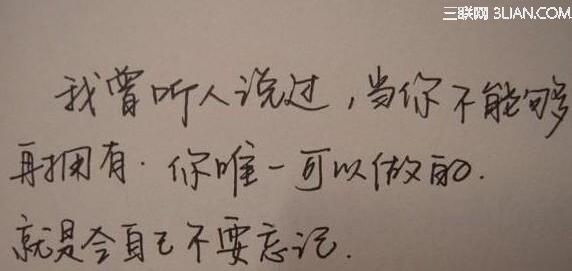 三联网 3LIAN.COM
我曾听人说过，当你不能够
再拥有．你唯一可以做的．
就是令自己不要忘记．